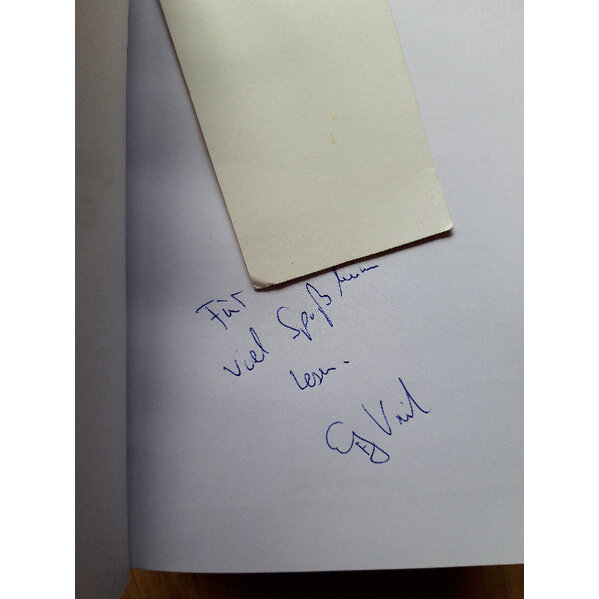 Für
viel Spaß beim
lesen.